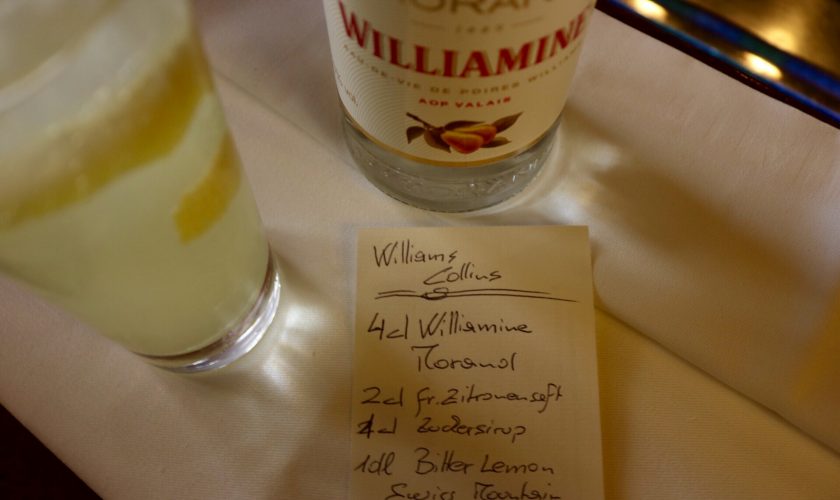 MORAND
1889
WILLIAMINE
EAU-DE-VIE DE POIRES WILLIAMS
AOP VALAIS
Williams
Collins
4cl Williamine
Morand
2cl fr. Zitronensaft
1cl Zuckersirup
1dl Bitter Lemon
Swiss Mountain